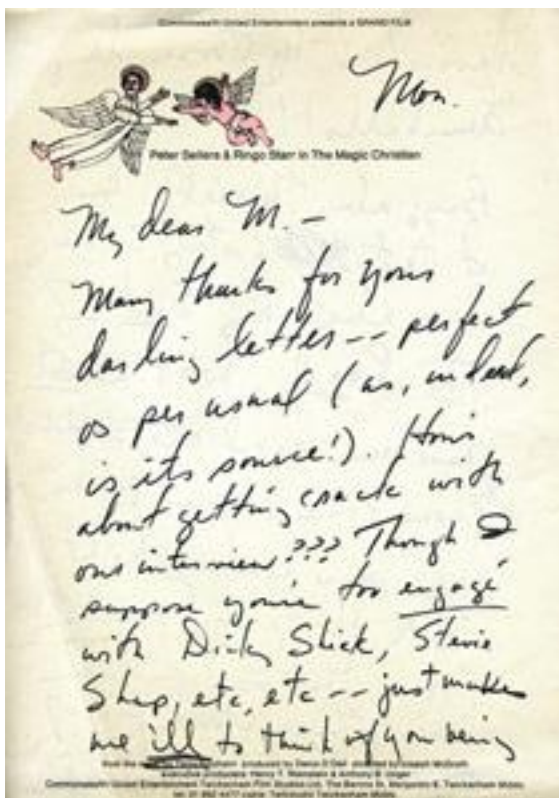 Commonwealth United Entertainment presents a GRAND FILM
Mon.
Peter Sellers & Ringo Starr in The Magic Christian
My dear M. —
Many thanks for your
darling letter -- perfect
as per usual (as, indeed,
is its source!). How's
about getting crack with
our interview??? Though I
suppose you're too engagé
with Dicky Slick, Stevie
Shap, etc, etc -- just makes
me ill to think of you being
produced by Denis O'Dell directed by Joseph McGrath
executive producers: Henry T. Weinstein & Anthony B. Unger
Commonwealth United Entertainment Twickenham Film Studios Ltd, The Barons St. Margarets E. Twickenham Middx.
tel: 01 892 4477 cable: Twitstudio Twickenham Middx